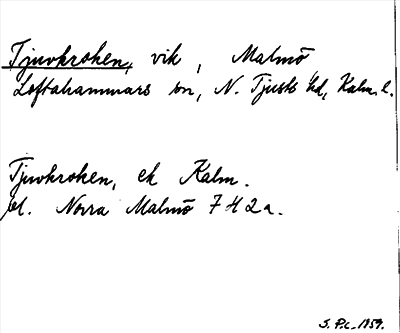 Tjuvkroken, vik, Malmö
Loftahammars sn, N. Tjusts hd, Kalm. l.
Tjuvkroken, ek Kalm.
bl. Norra Malmö 7 H 2 a.
S. P:c. 1959.